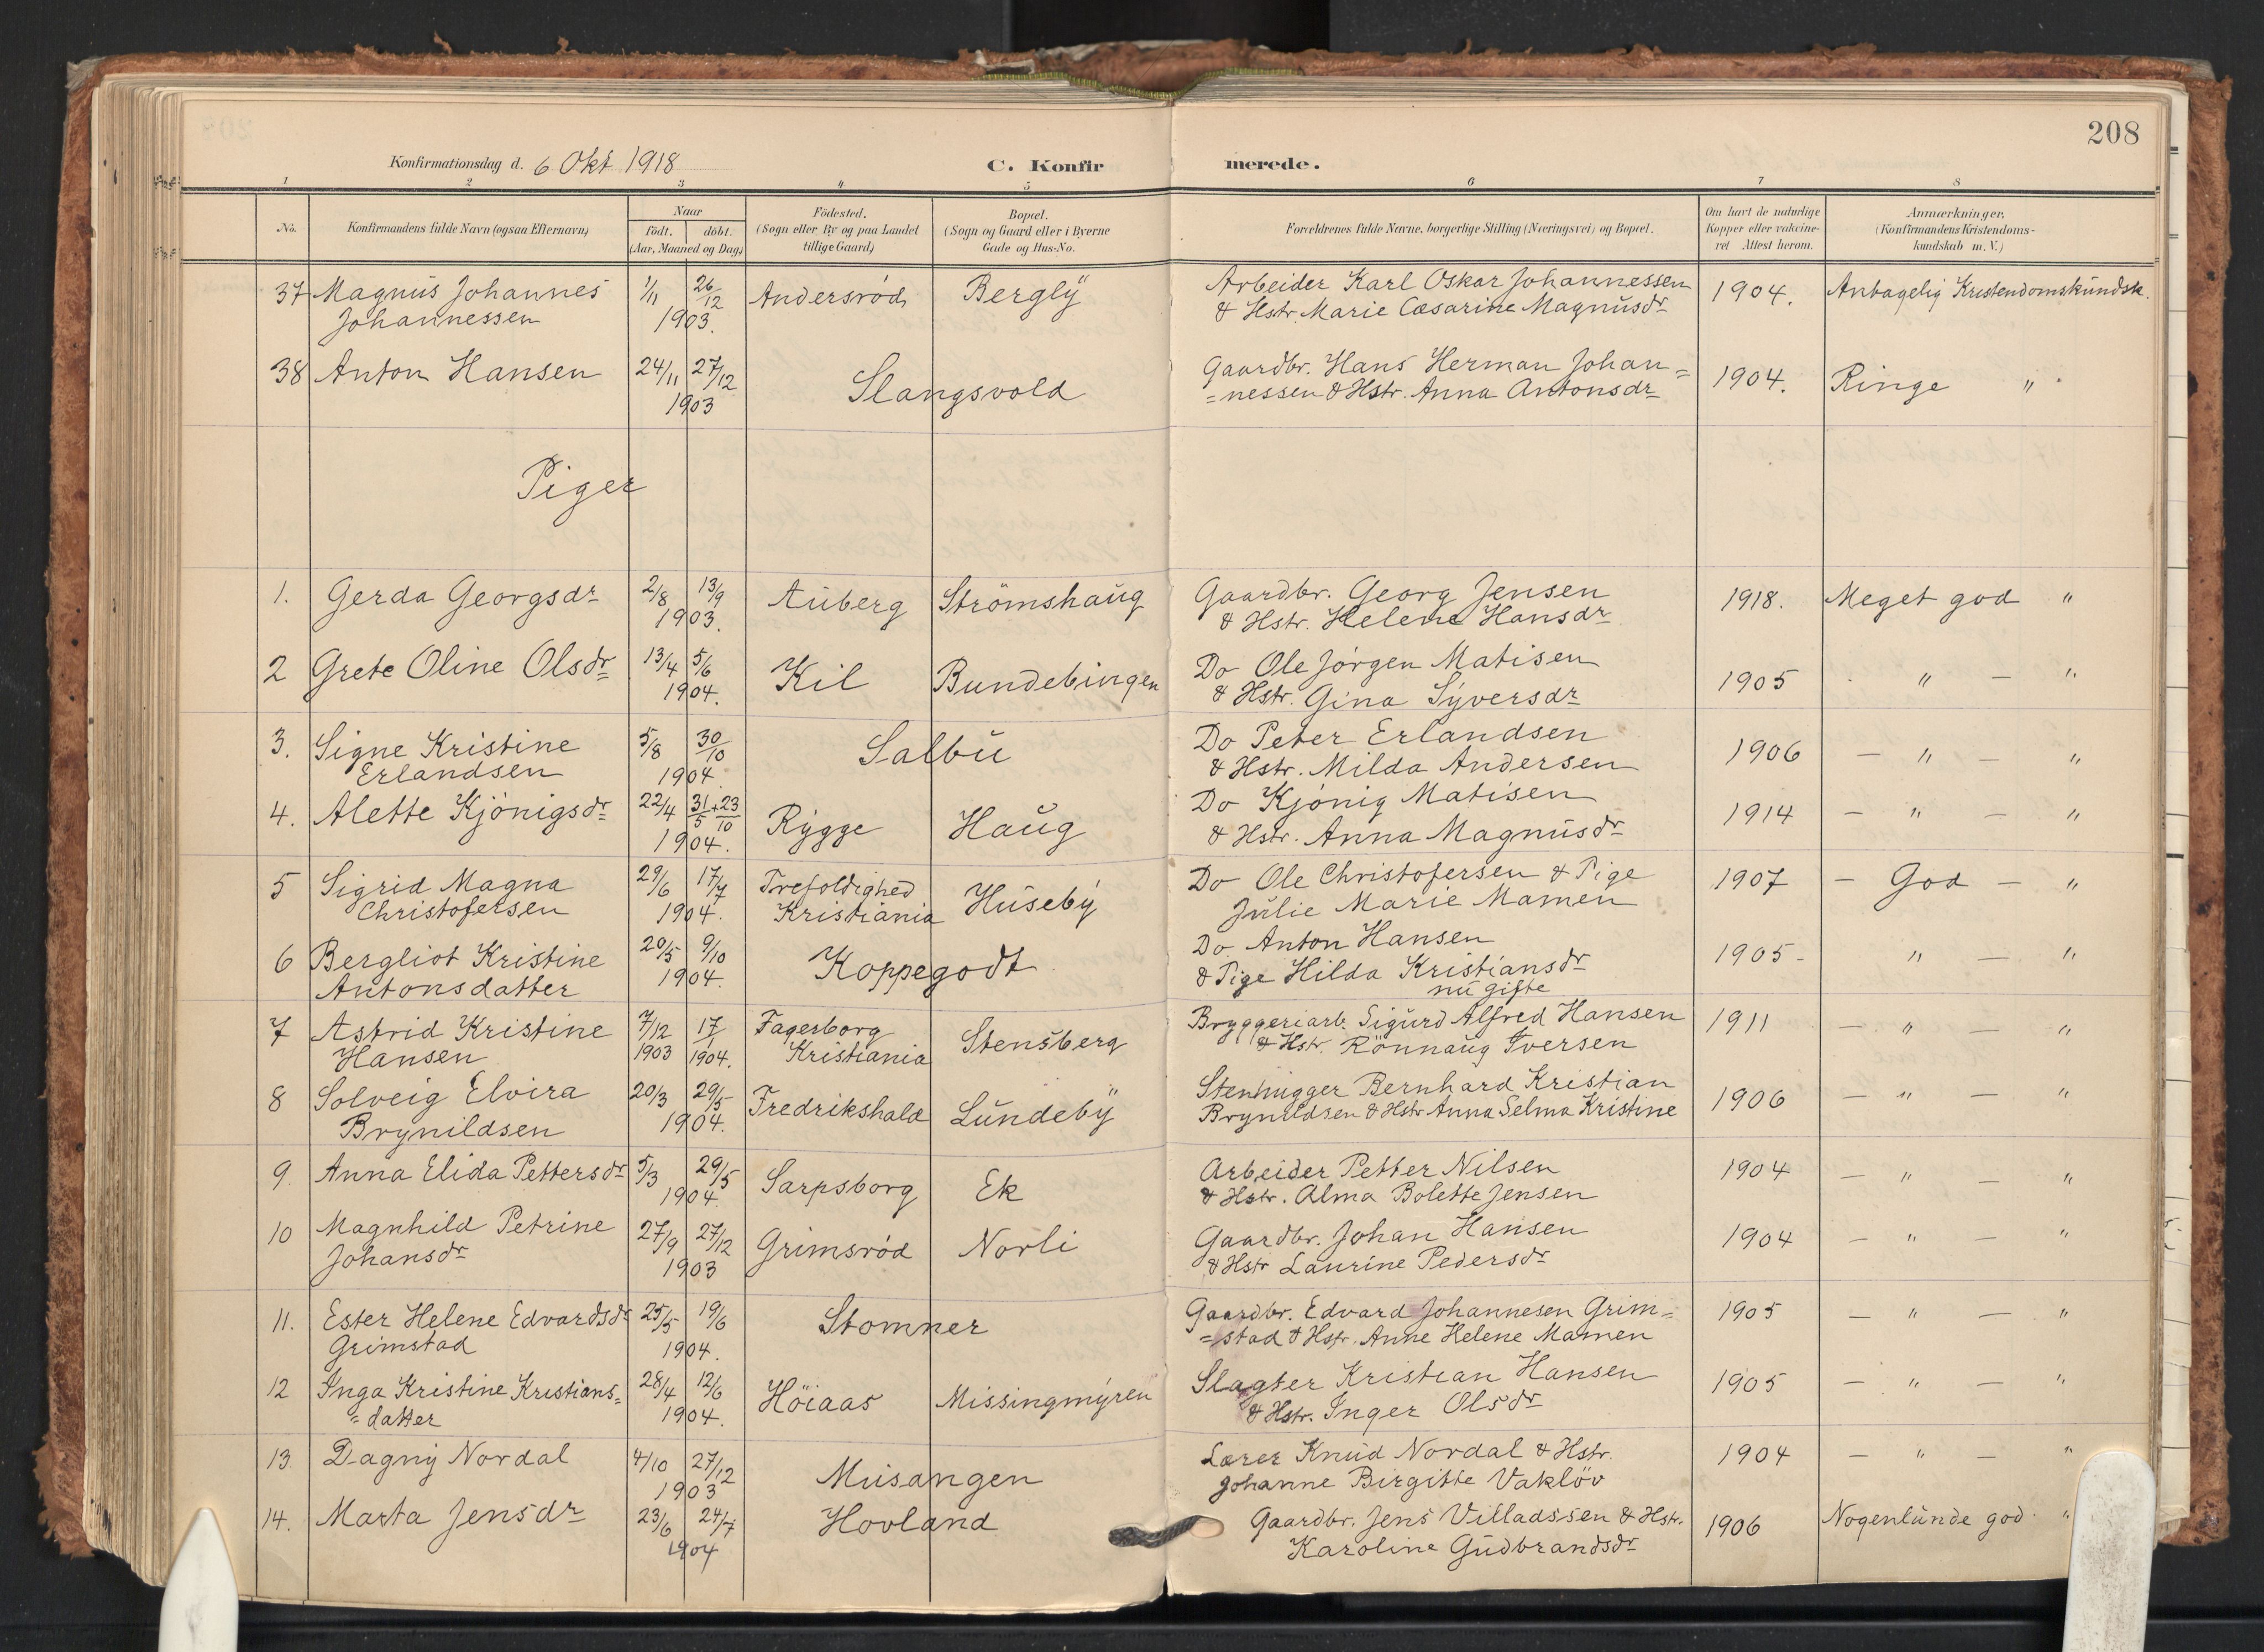 208
Konfirmationsdag d. 6 Okt 1918
C. Konfirmerede.
1 2 3 4 5 6 7 8
No. Konfirmandens fulde Navn (ogsaa Efternavn) Naar født. døbt. (Aar, Maaned og Dag) Födested. (Sogn eller By og paa Landet tillige Gaard) Bopæl. (Sogn og Gaard eller i Byerne Gade og Hus-No. Forældrenes fulde Navne, borgerlige Stilling (Næringsvei) og Bopæl. Om havt de naturlige Kopper eller vakcineret Attest herom. Anmærkninger, (Konfirmandens Kristendomskundskab m. V.)
37 Magnus Johannes 1/11 26/12 Andersröd Bergly Arbeider Karl Oskar Johannessen 1904. Antagelig Kristendomskundsk.
Johannessen 1903. & Hstr. Marie Cæsarine Magnusdr
38 Anton Hansen 24/11 27/12 Slangsvold Gaardbr. Hans Herman Johan= 1904. Ringe "
1903 =nessen & Hstr. Anna Antonsdr
Piger
1. Gerda Georgsdr 2/8 13/9 Auberg Strömshaug Gaardbr. Georg Jensen 1918. Meget god "
1903. & Hstr. Helene Hansdr
2 Grete Oline Olsdr 13/4 5/6 Kil Bundebingen Do Ole Jörgen Matisen 1905 " — "
1904. & Hstr. Gina Syversdr
3. Signe Kristine 5/8 30/10 Salbu Do Peter Erlandsen 1906 — " — "
Erlandsen 1904. & Hstr. Milda Andersen
4. Alette Kjönigsdr 22/4 31/5 + 23/10 Rygge Haug Do Kjönig Matisen 1914 — " — "
1904. & Hstr. Anna Magnusdr
5 Sigrid Magna 29/6 17/7 Trefoldighed Huseby Do Ole Christofersen & Pige 1907 — God — "
Christofersen 1904. Kristiania Julie Marie Mamen
6 Bergliot Kristine 20/5 9/10 Koppegodt Do Anton Hansen 1905- " — "
Antonsdatter 1904. & Pige Hilda Kristiansdr
nu gifte
7 Astrid Kristine 7/12 17/1 Fagerborg Stensberg Bryggeriarb. Sigurd Alfred Hansen 1911 — " — "
Hansen 1903 1904. Kristiania & Hstr. Rönnaug Iversen
8 Solveig Elvira 20/3 29/5 Fredrikshald Lundeby Stenhugger Bernhard Kristian 1906 — " — "
Brynildsen 1904. Brynildsen & Hstr Anna Selma Kristine
9. Anna Elida Pettersdr 5/3 29/5 Sarpsborg Ek Arbeider Petter Nilsen 1904 — " — "
1904. & Hstr. Alma Bolette Jensen
10 Magnhild Petrine 27/9 27/12 Grimsröd Norli Gaardbr. Johan Hansen 1904 — " — "
Johansdr 1903 & Hstr Laurine Pedersdr
11. Ester Helene Edvardsdr 25/5 19/6 Stomner Gaardbr. Edvard Johannesen Grim= 1905 — " — "
Grimstad 1904. =stad & Hstr. Anne Helene Mamen
12 Inga Kristine Kristians= 28/4 12/6 Höiaas Missingmyren Slagter Kristian Hansen 1905 — " — "
=datter 1904. & Hstr. Inger Olsdr
13. Dagny Nordal 4/10 27/12 Musangen Lærer Knud Nordal & Hstr. 1904 — " — "
1903 Johanne Birgitte Vaklöv
14. Marta Jensdr 23/6 24/7 Hovland Gaardbr. Jens Villadssen & Hstr. 1906 Nogenlunde god "
1904 Karoline Gudbrandsdr